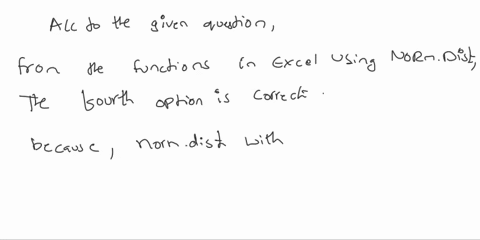 Acc to the given question,
from the functions in Excel using Norm.Dist,
The fourth option is correct.
because, norm.dist with